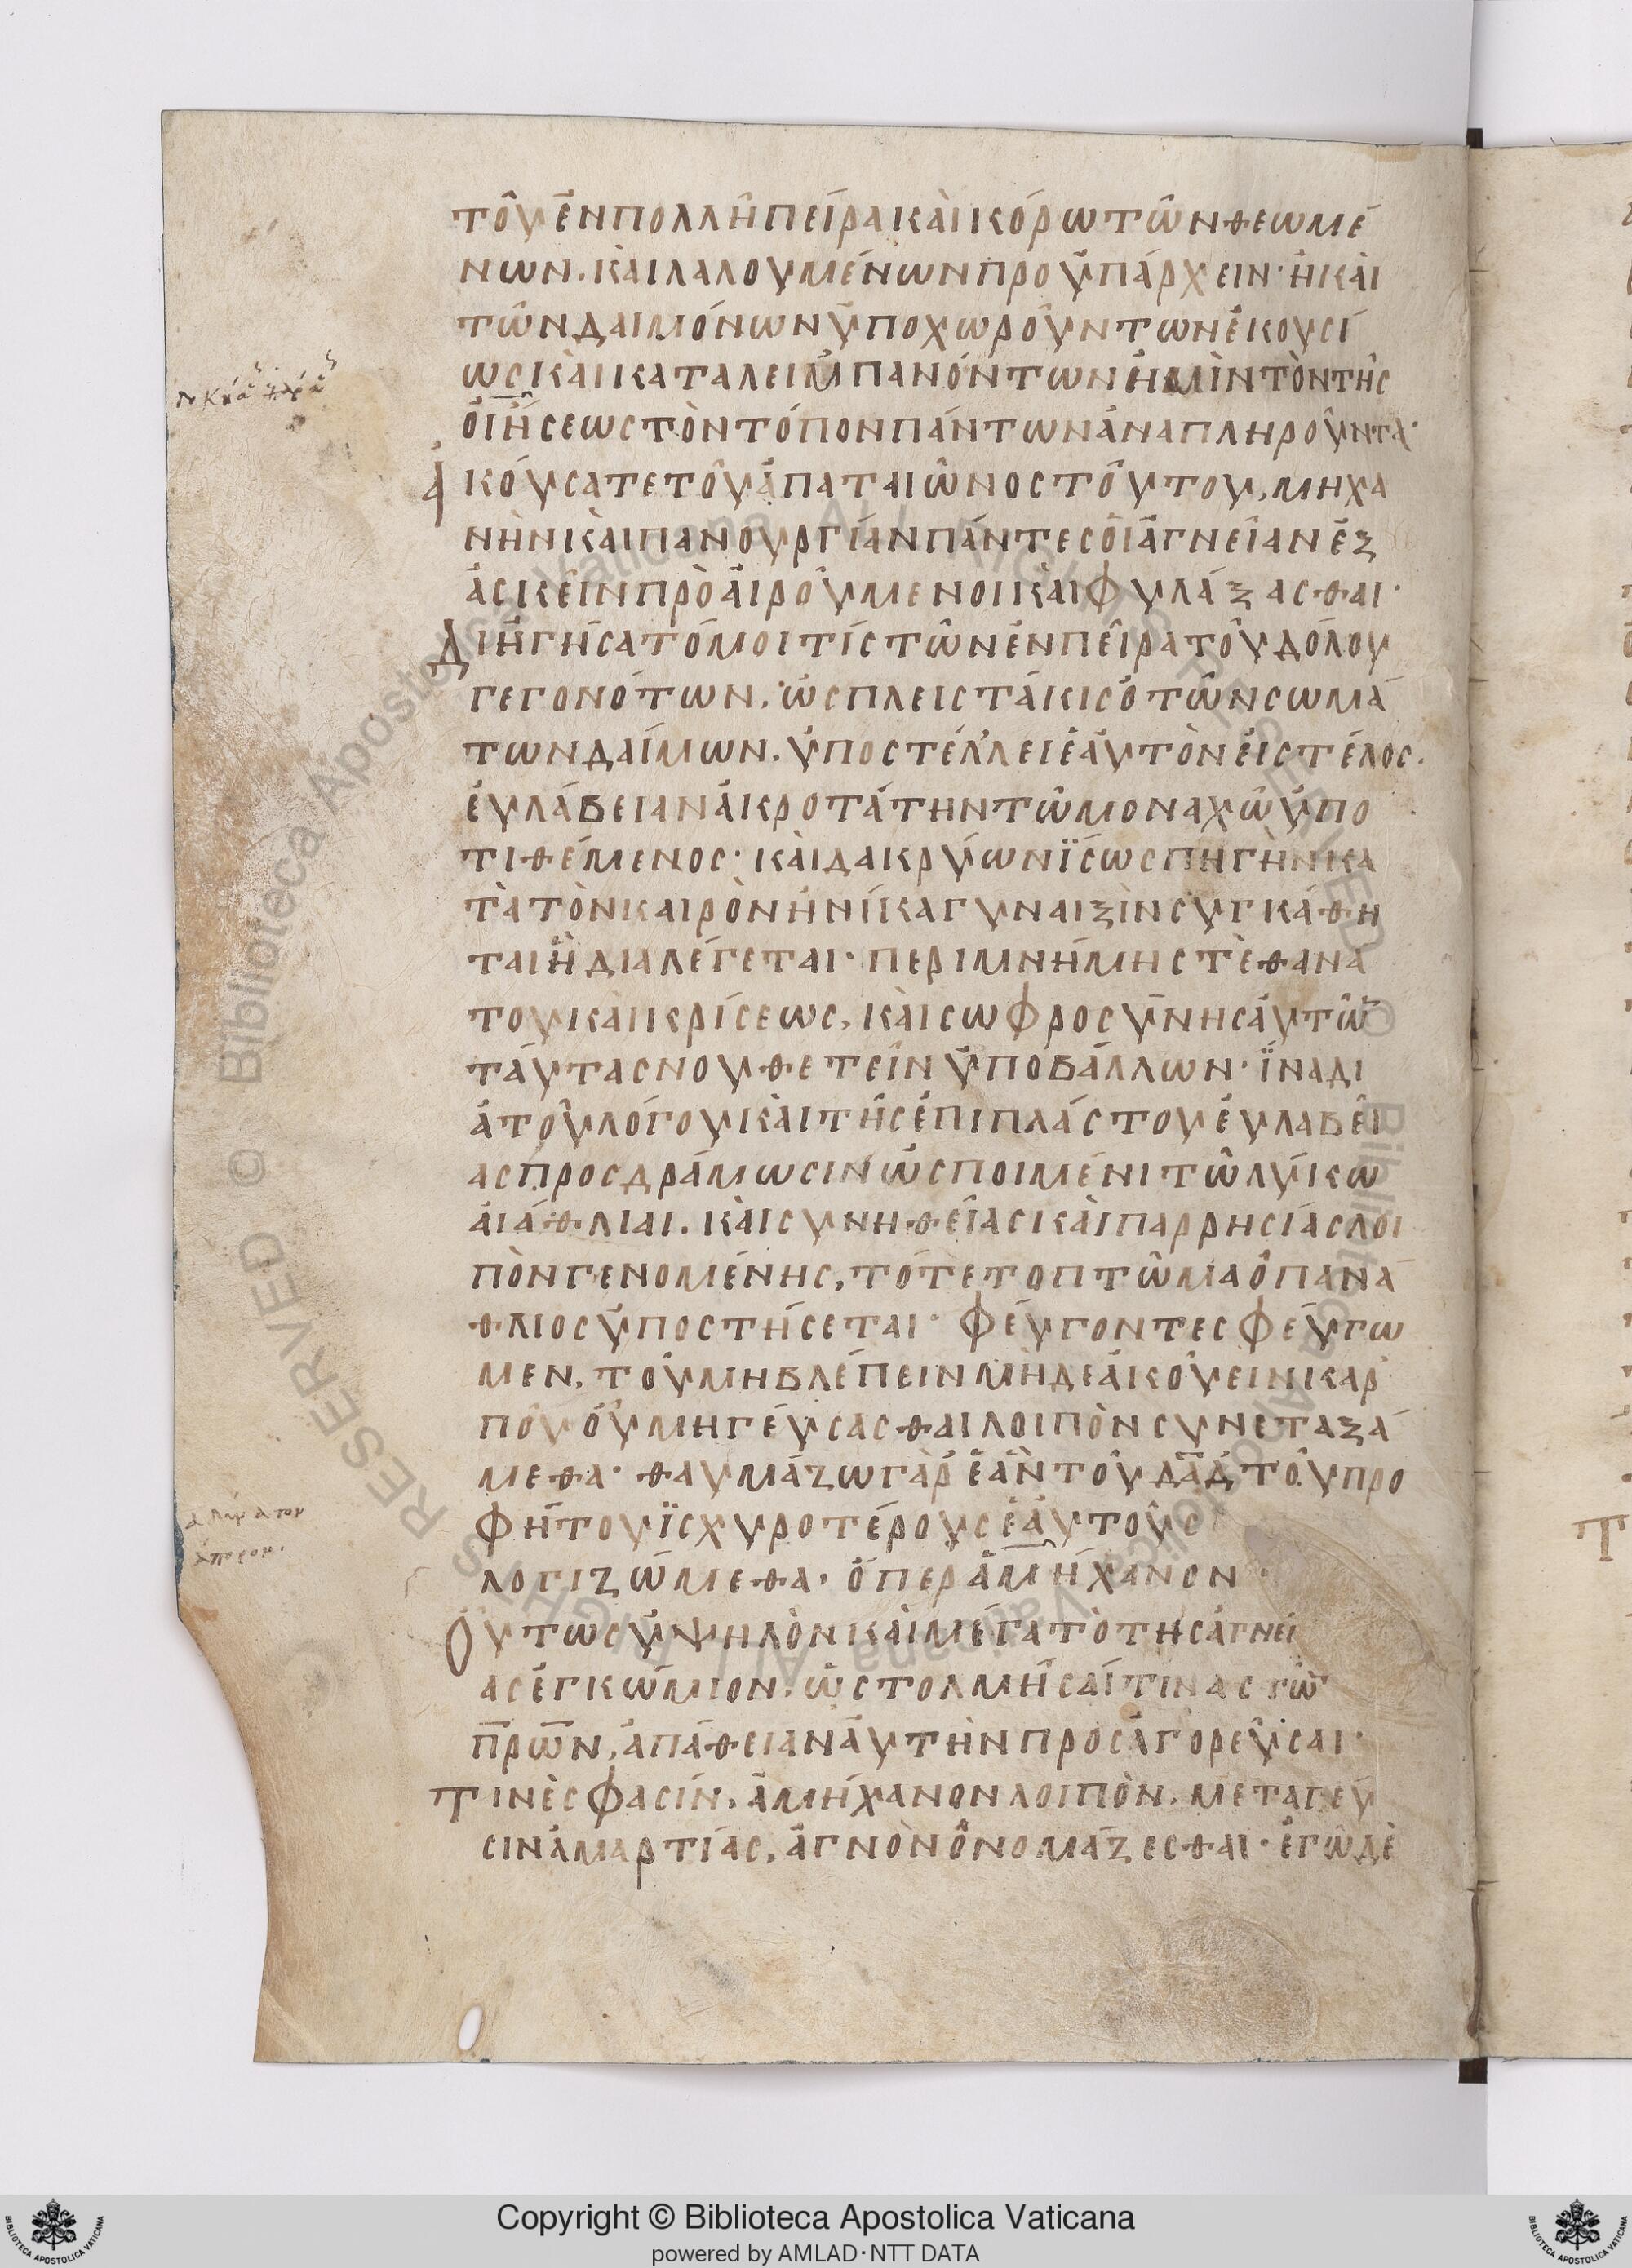 τοῦ ἐν πολλῆ πείρα καὶ κόρω τῶν θεωμέ
νων. καὶ λαλουμένων προϋπάρχειν· ἢ καὶ
τῶν δαιμόνων ὑποχωρούντων ἑκουσί
ως καὶ καταλειμπανόντων ἡμῖν τὸν τῆς
οἰήσεως τὸν τόπον πάντων ἀναπληροῦντα·
ἀκούσατε τοῦ ἀπαταιῶνος τούτου, μηχα
νὴν καὶ πανουργίαν πάντες οἱ ἁγνείαν ἐξ
ασκεῖν προαιρούμενοι καὶ φυλάξασθαι·
Διηγήσατό μοι τίς τῶν ἐν πείρα τοῦ δόλου
γεγονότων. ὡς πλειστάκις ὁ τῶν σωμά
των δαίμων. ὑποστέλλει ἑαυτὸν εἰς τέλος.
εὐλάβειαν ἀκροτάτην τῶ μοναχῶ ὑπο
τιθέμενος· καὶ δακρύων ἴσως πηγὴν κα
τὰ τὸν καιρὸν ἡνίκα γυναιξὶν συγκάθη
ται ἢ διαλέγεται· περι μνήμης τὲ θανά
του καὶ κρίσεως, καὶ σωφροσύνης αὐτῶ
ταύτας νουθετεῖν ὑποβάλλων· ἵνα δι
ὰ τοῦ λόγου καὶ τῆς ἐπιπλάστου εὐλαβεί
ας προσδράμωσιν ὡς ποιμένι τῶ λύκω
αἱ ἄθλιαι. καὶ συνηθείας καὶ παρρησίας λοι
πὸν γενομένης, τότε το πτῶμα ὁ πανά
θλιος ὑποστήσεται· φεύγοντες φεύγω
μεν. τοῦ μὴ βλέπειν μὴδε ἀκούειν καρ
ποῦ οὗ μη γεύσασθαι λοιπὸν συνεταξά
μεθα· θαυμάζω γὰρ ἐὰν τοῦ δα̅δ τοῦ προ
φήτου ἰσχυροτέρους ἑαυτοὺς
λογιζώμεθα· ὅπερ ἀμήχανον·
Οὕτως ὑψηλὸν καὶ μέγα τὸ τῆς ἁγνεί
ας ἐγκώμιον, ὥς τολμῆσαί τινας τῶ
π̅ρω̅ν, ἀπάθειαν αὐτὴν προσαγορεῦσαι·
Τινὲς φασίν, ἀμήχανον λοιπὸν. μετα γεῦ
σιν ἁμαρτίας, ἁγνὸν ὀνομάζεσθαι· ἐγὼ δὲ
Copyright © Biblioteca Apostolica Vaticana
powered by AMLAD·NTT DATA